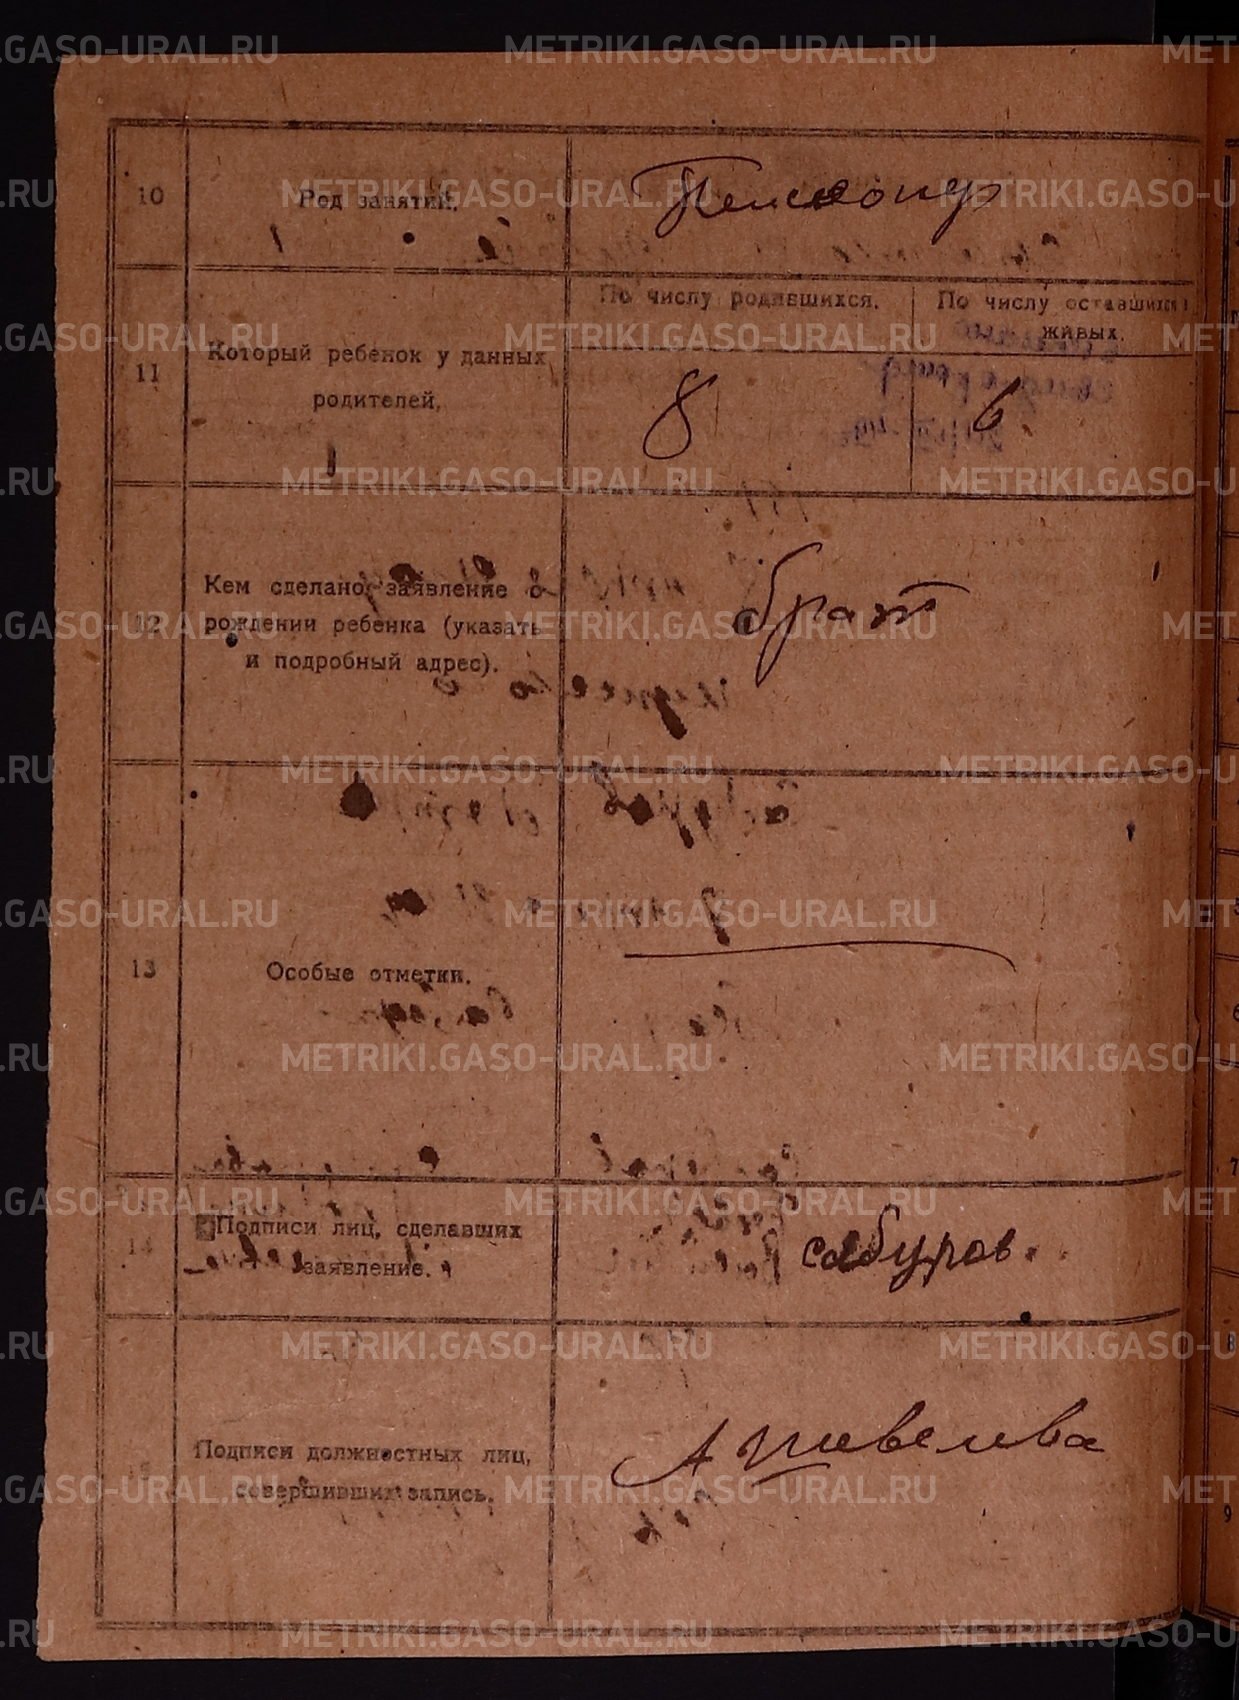 10
Род занятий.
Пенсионер
11
Который ребенок у данных
родителей.
По числу родившихся.
По числу оставшихся
живых.
8
6
12
Кем сделано заявление о
рождении ребенка (указать
и подробный адрес).
брат
13
Особые отметки.
14
Подписи лиц, сделавших
заявление.
сабуров.
15
Подписи должностных лиц,
совершивших запись.
METRIKI.GASO-URAL.RU